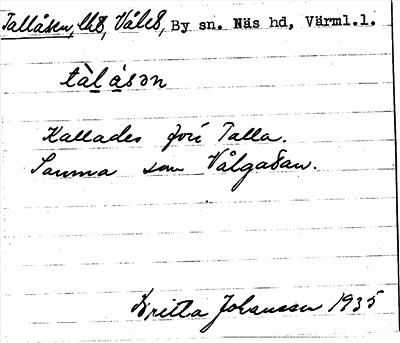 Tallåsen, By sn. Näs hd, Värml.l.
tàlåsən
Kallades förr Talla.
Samma som Vålgåsan.
Britta Johansson 1935